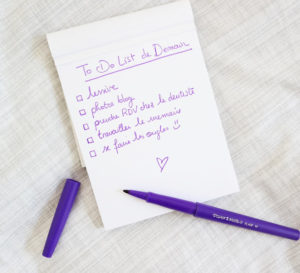 To Do List de Demain
lessive
photos blog
prendre RDV chez le dentiste
travailler le memoire
se faire les ongles